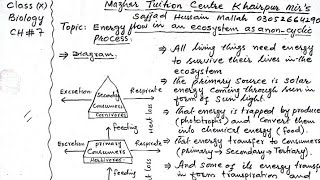 Class (X)
Biology
CH#7
Mazhar Tuition Centre Khairpur Mir's
Sajjad Hussain Mallah 03052664290
Topic: Energy flow in an ecosystem as non-cyclic
process.
⇒ Diagram:
Excretion
Respirate
Secondary
Consumers
Carnivores
feeding
Heat loss
Excretion
Respirate
Primary
Consumers
Herbivores
feeding
⇒ All living things need energy
to survive their lives in the
ecosystem
⇒ the primary source is solar
energy coming through sun in
form of sun light.
⇒ that energy is trapped by produce
(phototrops) and convert them
into chemical energy (food).
⇒ that energy transfer to Consumers
(Primary → Secondary → Tertiary).
⇒ And some of its energy transfer
in form transpiration and